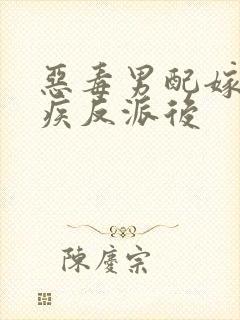 惡毒男配嫁
疾反派後
陳慶宗